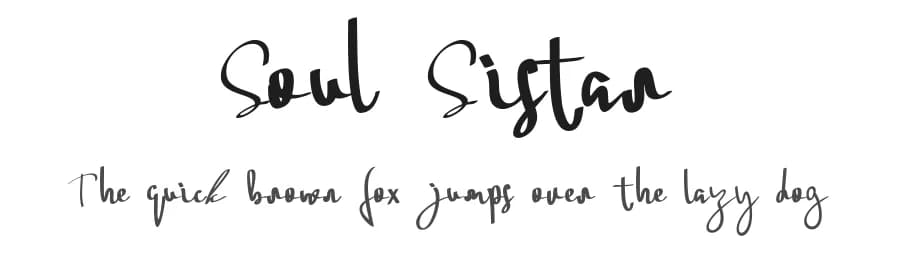 Soul Sistar
The quick brown fox jumps over the lazy dog